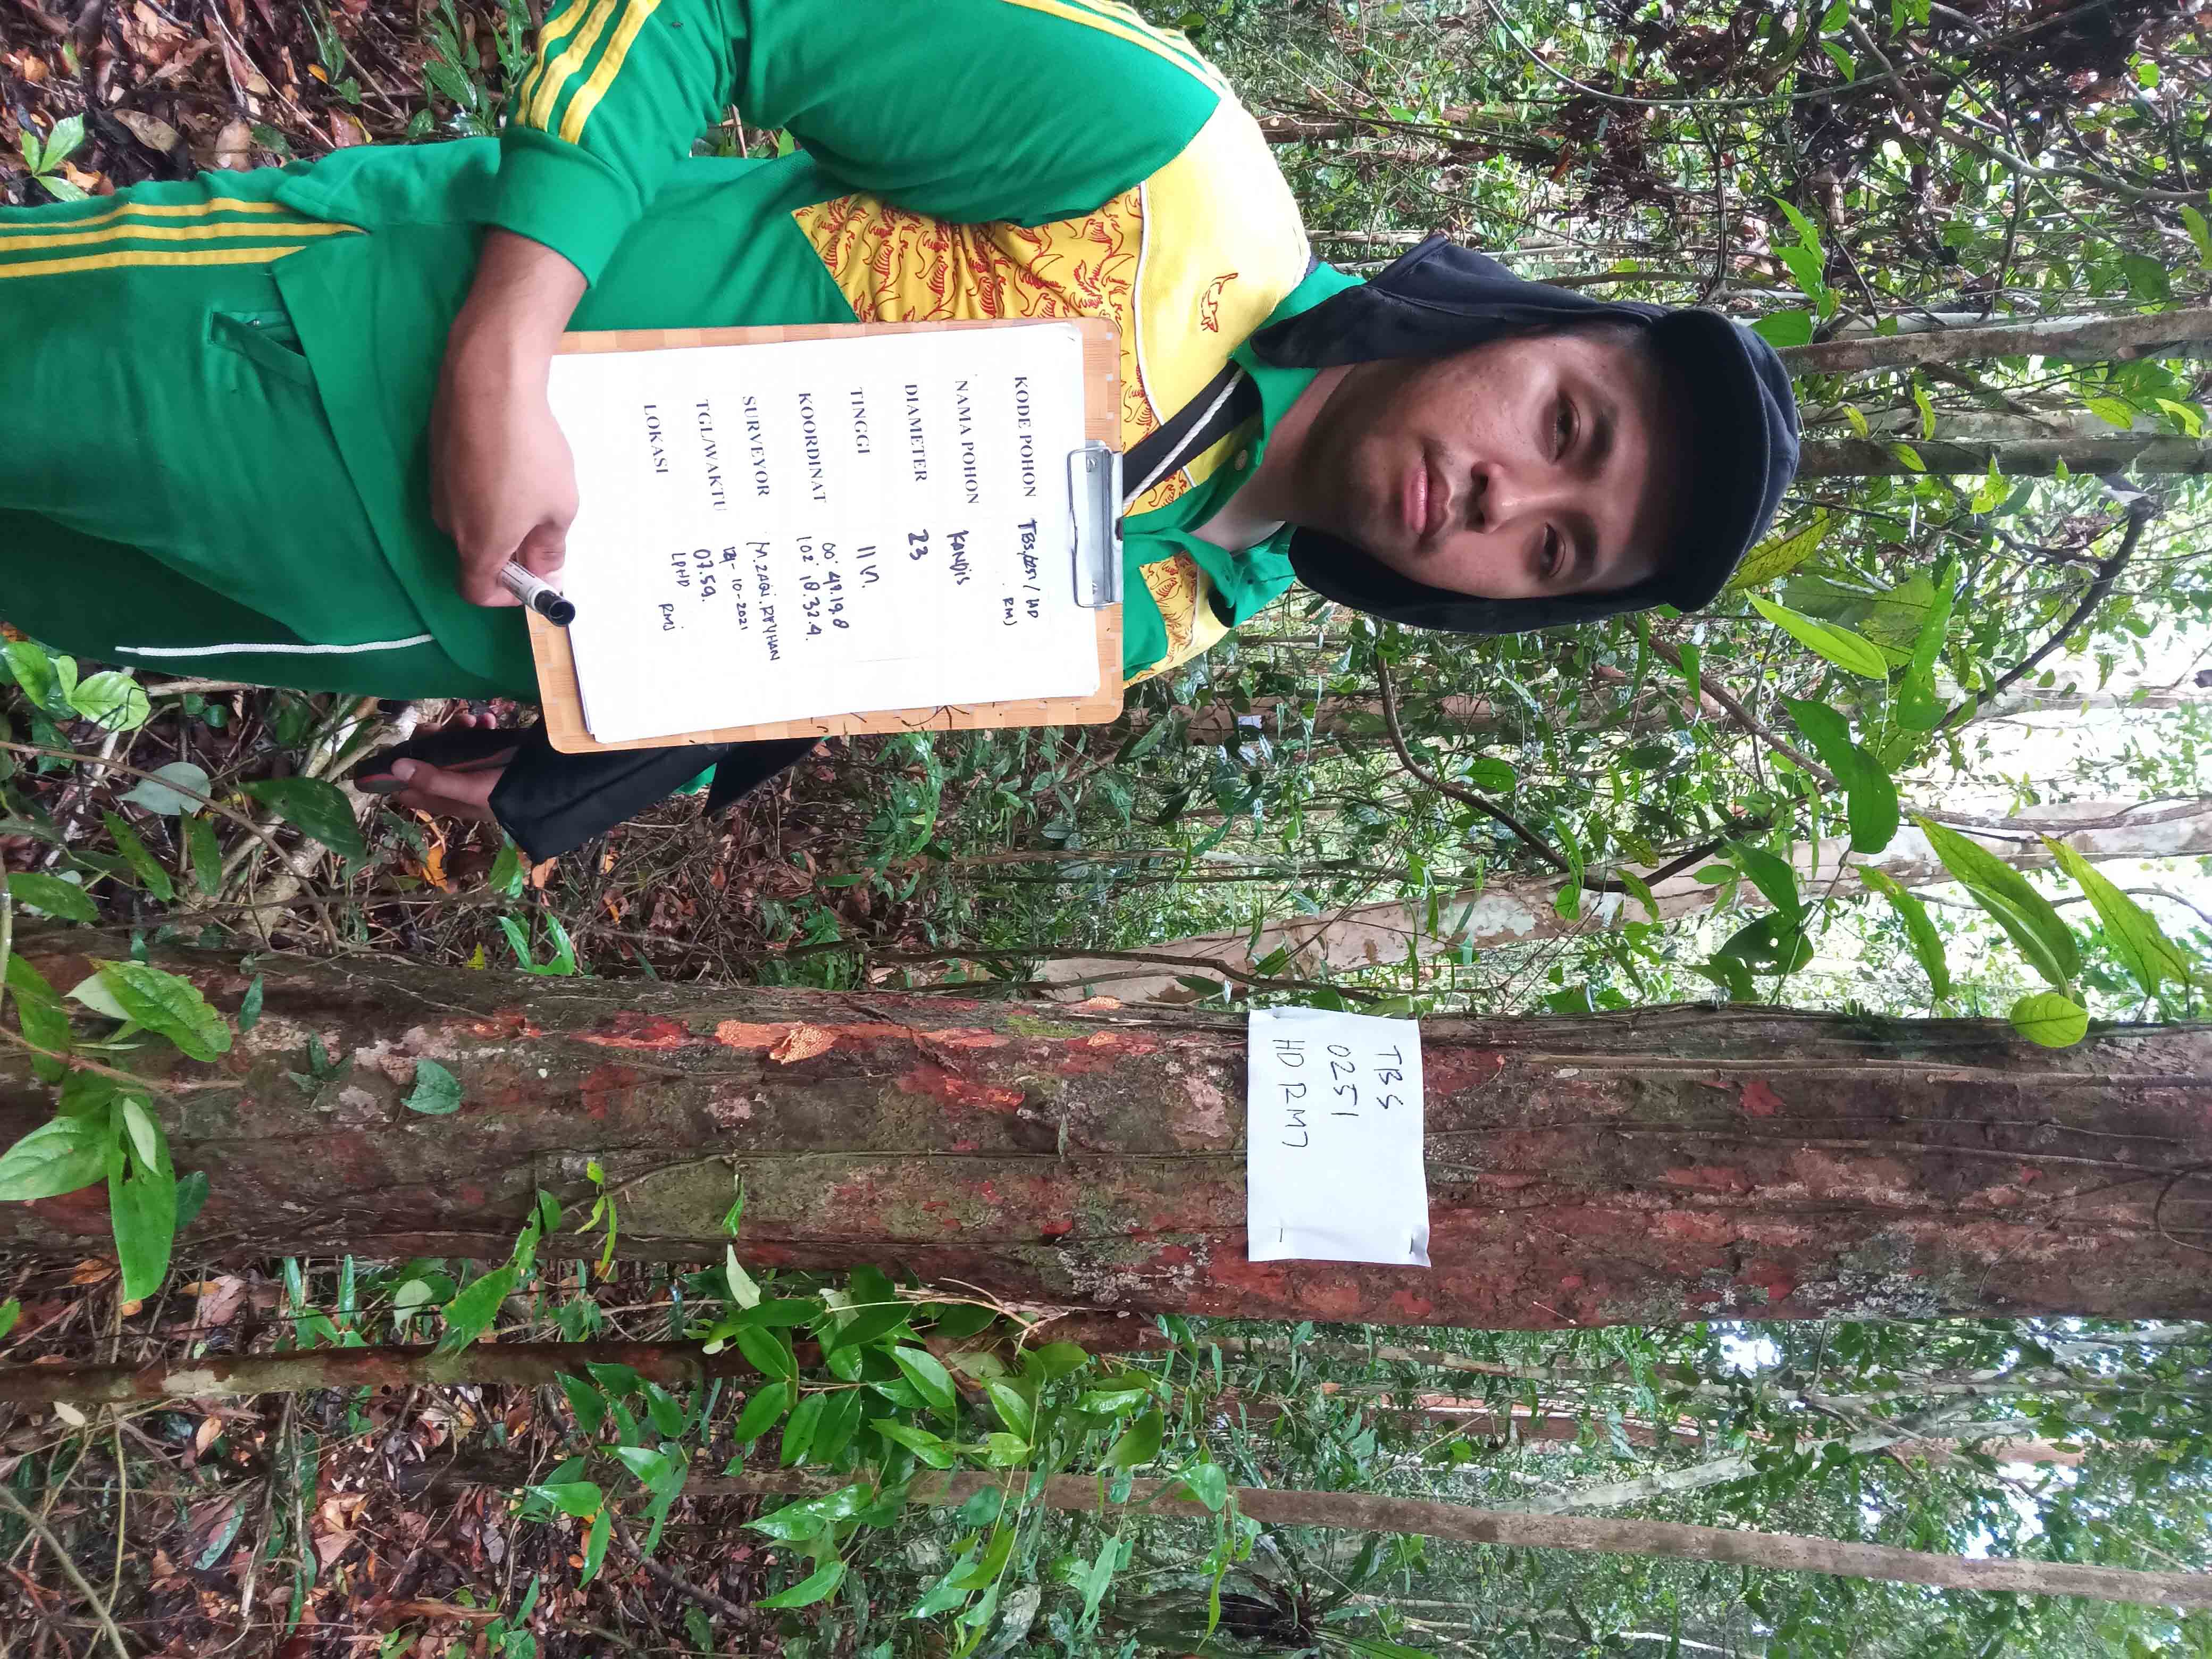 KODE POHON TBS/0251/HD
RMJ
NAMA POHON KANDIS
DIAMETER 23
TINGGI 11 M.
KOORDINAT 00° 49.19.8
102° 18.32.4.
SURVEYOR M. ZAQI. RAYHAN
TGL/WAKTU -10-2021
07.59.
LOKASI LPHD RMJ
TBS
0251
HD RMJ